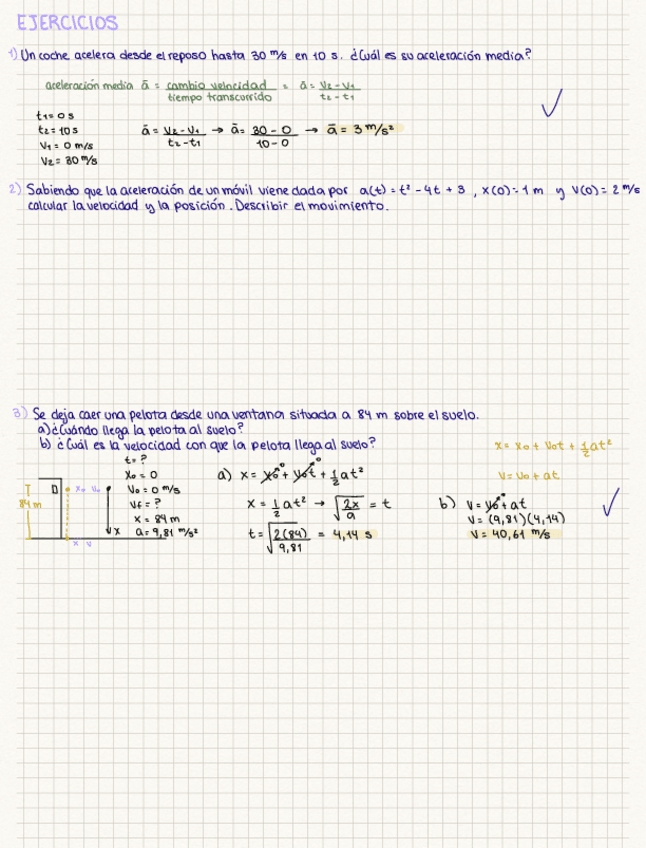 EJERCICIOS
1) Un coche acelera desde el reposo hasta 30 m/s en 10 s. ¿Cuál es su aceleración media?
aceleración media ā = cambio velocidad / tiempo transcurrido = ā = V₂ - V₁ / t₂ - t₁
t₁ = 0 s
t₂ = 10 s
V₁ = 0 m/s
V₂ = 30 m/s
ā = V₂ - V₁ / t₂ - t₁ → ā = 30 - 0 / 10 - 0 → ā = 3 m/s²
2) Sabiendo que la aceleración de un móvil viene dada por a(t) = t² - 4t + 3 , x(0) = 1 m y V(0) = 2 m/s
calcular la velocidad y la posición. Describir el movimiento.
3) Se deja caer una pelota desde una ventana situada a 84 m sobre el suelo.
a) ¿Cuándo llega la pelota al suelo?
b) ¿Cuál es la velocidad con que la pelota llega al suelo?
x = x₀ + V₀t + ½at²
V = V₀ + at
84 m
x₀ V₀
x
x V
t = ?
X₀ = 0
V₀ = 0 m/s
Vf = ?
x = 84 m
a = 9,81 m/s²
a) x = x₀⁰ + V₀t⁰ + ½at²
x = ½at² → √2x/a = t
t = √2(84)/9,81 = 4,14 s
b) V = V₀⁰ + at
V = (9,81)(4,14)
V = 40,61 m/s